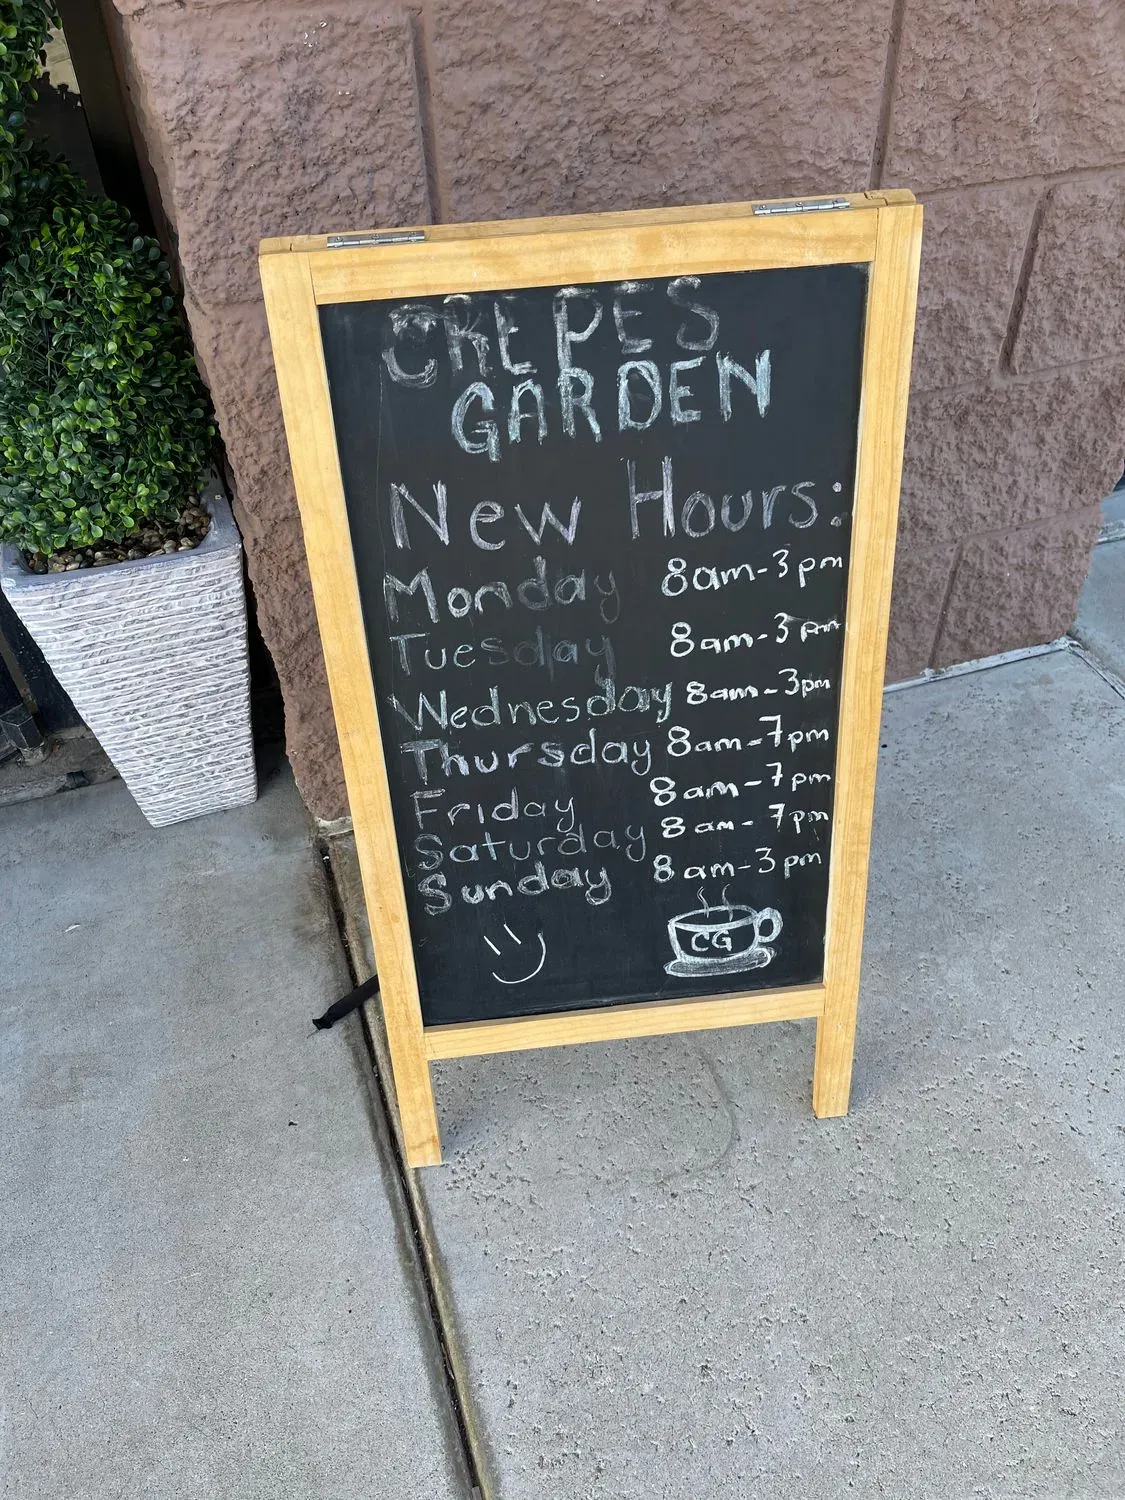 CREPES
GARDEN
New Hours:
Monday 8am-3pm
Tuesday 8am-3pm
Wednesday 8am-3pm
Thursday 8am-7pm
Friday 8am-7pm
Saturday 8am-7pm
Sunday 8am-3pm
CG